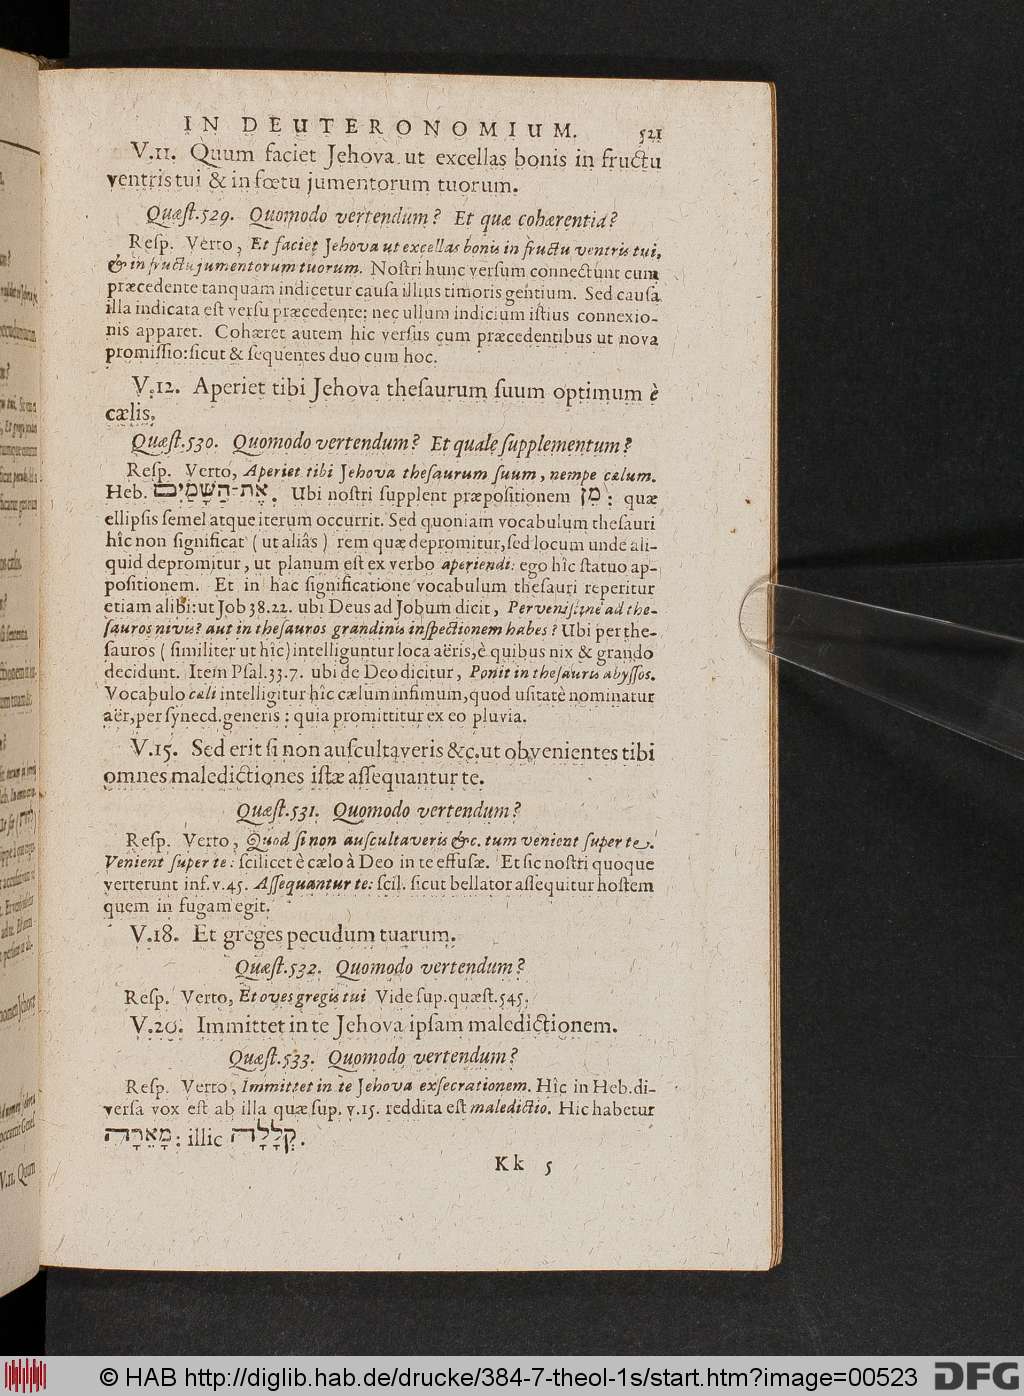 IN DEUTERONOMIUM. 521
V.11. Quum faciet Jehova ut excellas bonis in fructu
ventris tui & in fœtu jumentorum tuorum.
Quæst.529. Quomodo vertendum? Et quæ cohærentia?
Resp. Verto, Et faciet Jehova ut excellas bonis in fructu ventris tui,
& in fructu jumentorum tuorum. Nostri hunc versum connectunt cum
præcedente tanquam indicetur causa illius timoris gentium. Sed causa
illa indicata est versu præcedente: nec ullum indicium istius connexio-
nis apparet. Cohæret autem hic versus cum præcedentibus ut nova
promissio: sicut & sequentes duo cum hoc.
V.12. Aperiet tibi Jehova thesaurum suum optimum è
cælis.
Quæst.530. Quomodo vertendum? Et quale supplementum?
Resp. Verto, Aperiet tibi Jehova thesaurum suum, nempe cælum.
Heb. אֶת-הַשָּׁמַיִם. Ubi nostri supplent præpositionem מִן: quæ
ellipsis semel atque iterum occurrit. Sed quoniam vocabulum thesauri
hîc non significat (ut aliâs) rem quæ depromitur, sed locum unde ali-
quid depromitur, ut planum est ex verbo aperiendi: ego hîc statuo ap-
positionem. Et in hac significatione vocabulum thesauri reperitur
etiam alibi: ut Job 38.22. ubi Deus ad Jobum dicit, Pervenistine ad the-
sauros nivis? aut in thesauros grandinis inspectionem habes? Ubi per the-
sauros (similiter ut hîc) intelliguntur loca aëris, è quibus nix & grando
decidunt. Item Psal.33.7. ubi de Deo dicitur, Ponit in thesauris abyssos.
Vocabulo cæli intelligitur hîc cælum infimum, quod usitatè nominatur
aër, per synecd. generis: quia promittitur ex eo pluvia.
V.15. Sed erit si non auscultaveris &c. ut obvenientes tibi
omnes maledictiones istæ assequantur te.
Quæst.531. Quomodo vertendum?
Resp. Verto, Quod si non auscultaveris &c. tum venient super te.
Venient super te: scilicet è cælo à Deo in te effusæ. Et sic nostri quoque
verterunt inf.v.45. Assequantur te: scil. sicut bellator assequitur hostem
quem in fugam egit.
V.18. Et greges pecudum tuarum.
Quæst.532. Quomodo vertendum?
Resp. Verto, Et oves gregis tui Vide sup.quæst.545.
V.20. Immittet in te Jehova ipsam maledictionem.
Quæst.533. Quomodo vertendum?
Resp. Verto, Immittet in te Jehova exsecrationem. Hîc in Heb. di-
versa vox est ab illa quæ sup. v.15. reddita est maledictio. Hic habetur
מְאֵרָה: illic קְלָלָה.
Kk 5
© HAB http://diglib.hab.de/drucke/384-7-theol-1s/start.htm?image=00523
DFG